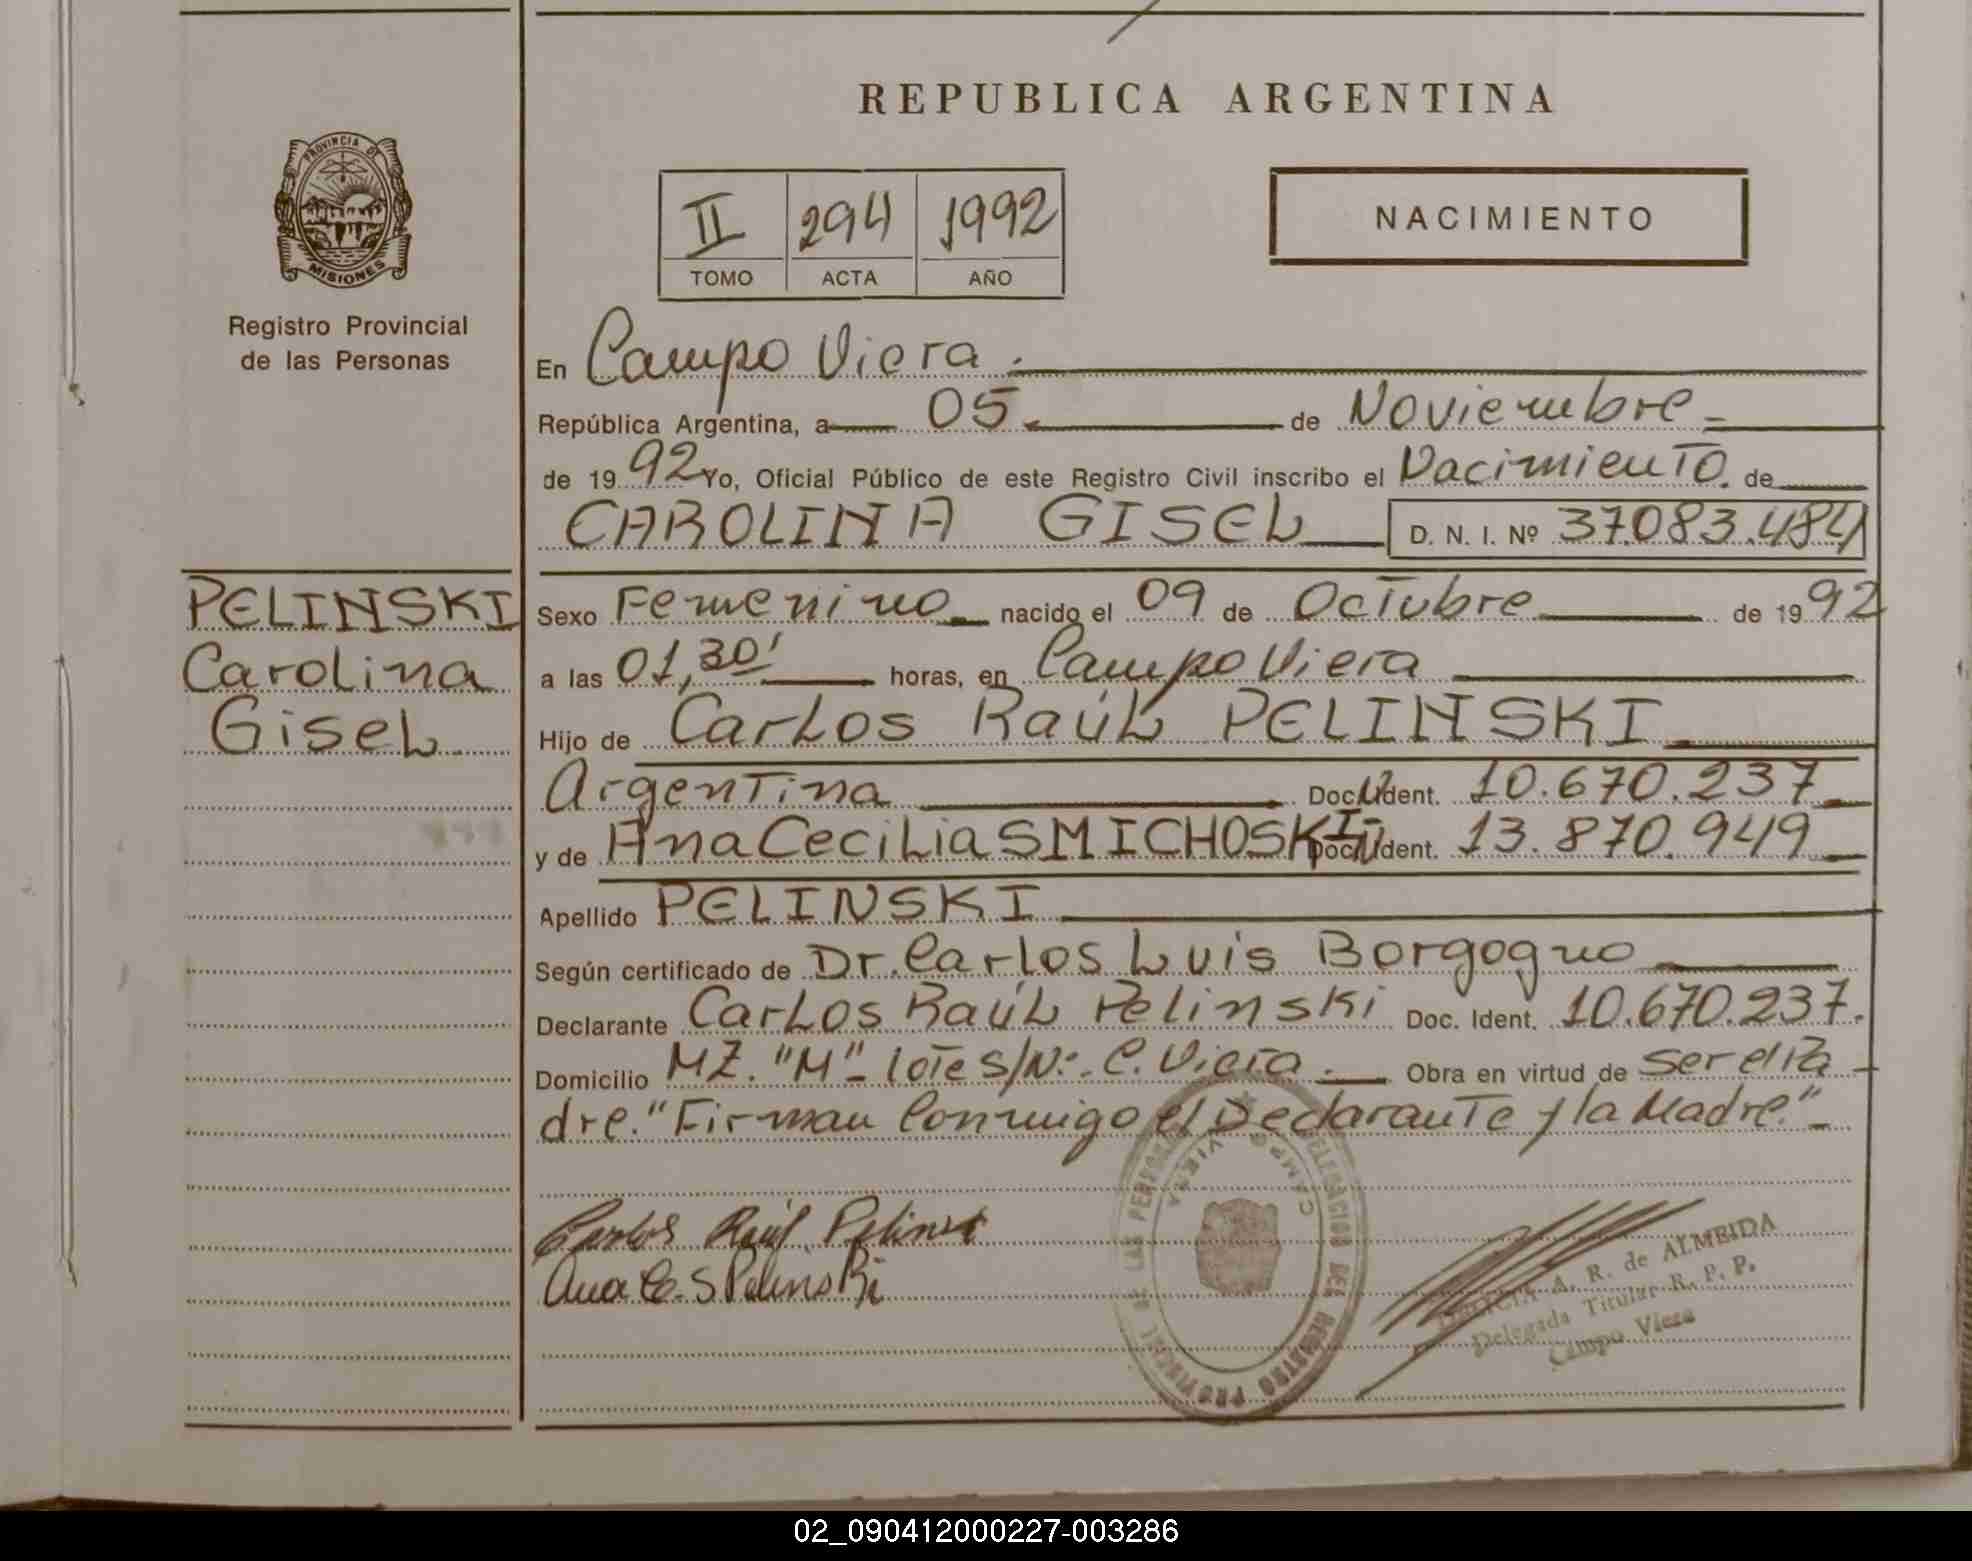 REPUBLICA ARGENTINA
PROVINCIA DE
MISIONES
Registro Provincial
de las Personas
II 294 1992
TOMO ACTA AÑO
NACIMIENTO
En Campo Viera.
República Argentina, a 05 de Noviembre
de 1992 Yo, Oficial Público de este Registro Civil inscribo el Nacimiento. de
CAROLINA GISEL D. N. I. Nº 37.083.484
PELINSKI
Carolina
Gisel
Sexo Femenino nacido el 09 de Octubre de 1992
a las 01,30' horas, en Campo Viera
Hijo de Carlos Raúl PELINSKI
Argentina Doc. Ident. 10.670.237
y de Ana Cecilia SMICHOSKI Doc. Ident. 13.870.949
Apellido PELINSKI
Según certificado de Dr. Carlos Luis Borgogno
Declarante Carlos Raúl Pelinski Doc. Ident. 10.670.237.
Domicilio MZ. "M" lote S/Nº. C. Viera. Obra en virtud de ser el Pa
dre. "Firman Conmigo el Declarante y la Madre."
Carlos Raúl Pelinski
Ana C. S Pelinski
DELEGACION DEL REGISTRO PROVINCIAL DE LAS PERSONAS
CAMPO VIERA
A. R. de ALMEIDA
Delegada Titular R. P. P.
Campo Viera
02_090412000227-003286